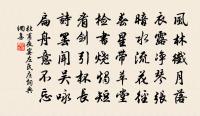 風林纖月落
衣露淨琴張
暗水流花徑
春星帶草堂
檢書燒燭短
看劍引杯長
詩罷聞吳詠
扁舟意不忘
杜甫夜宴左氏莊